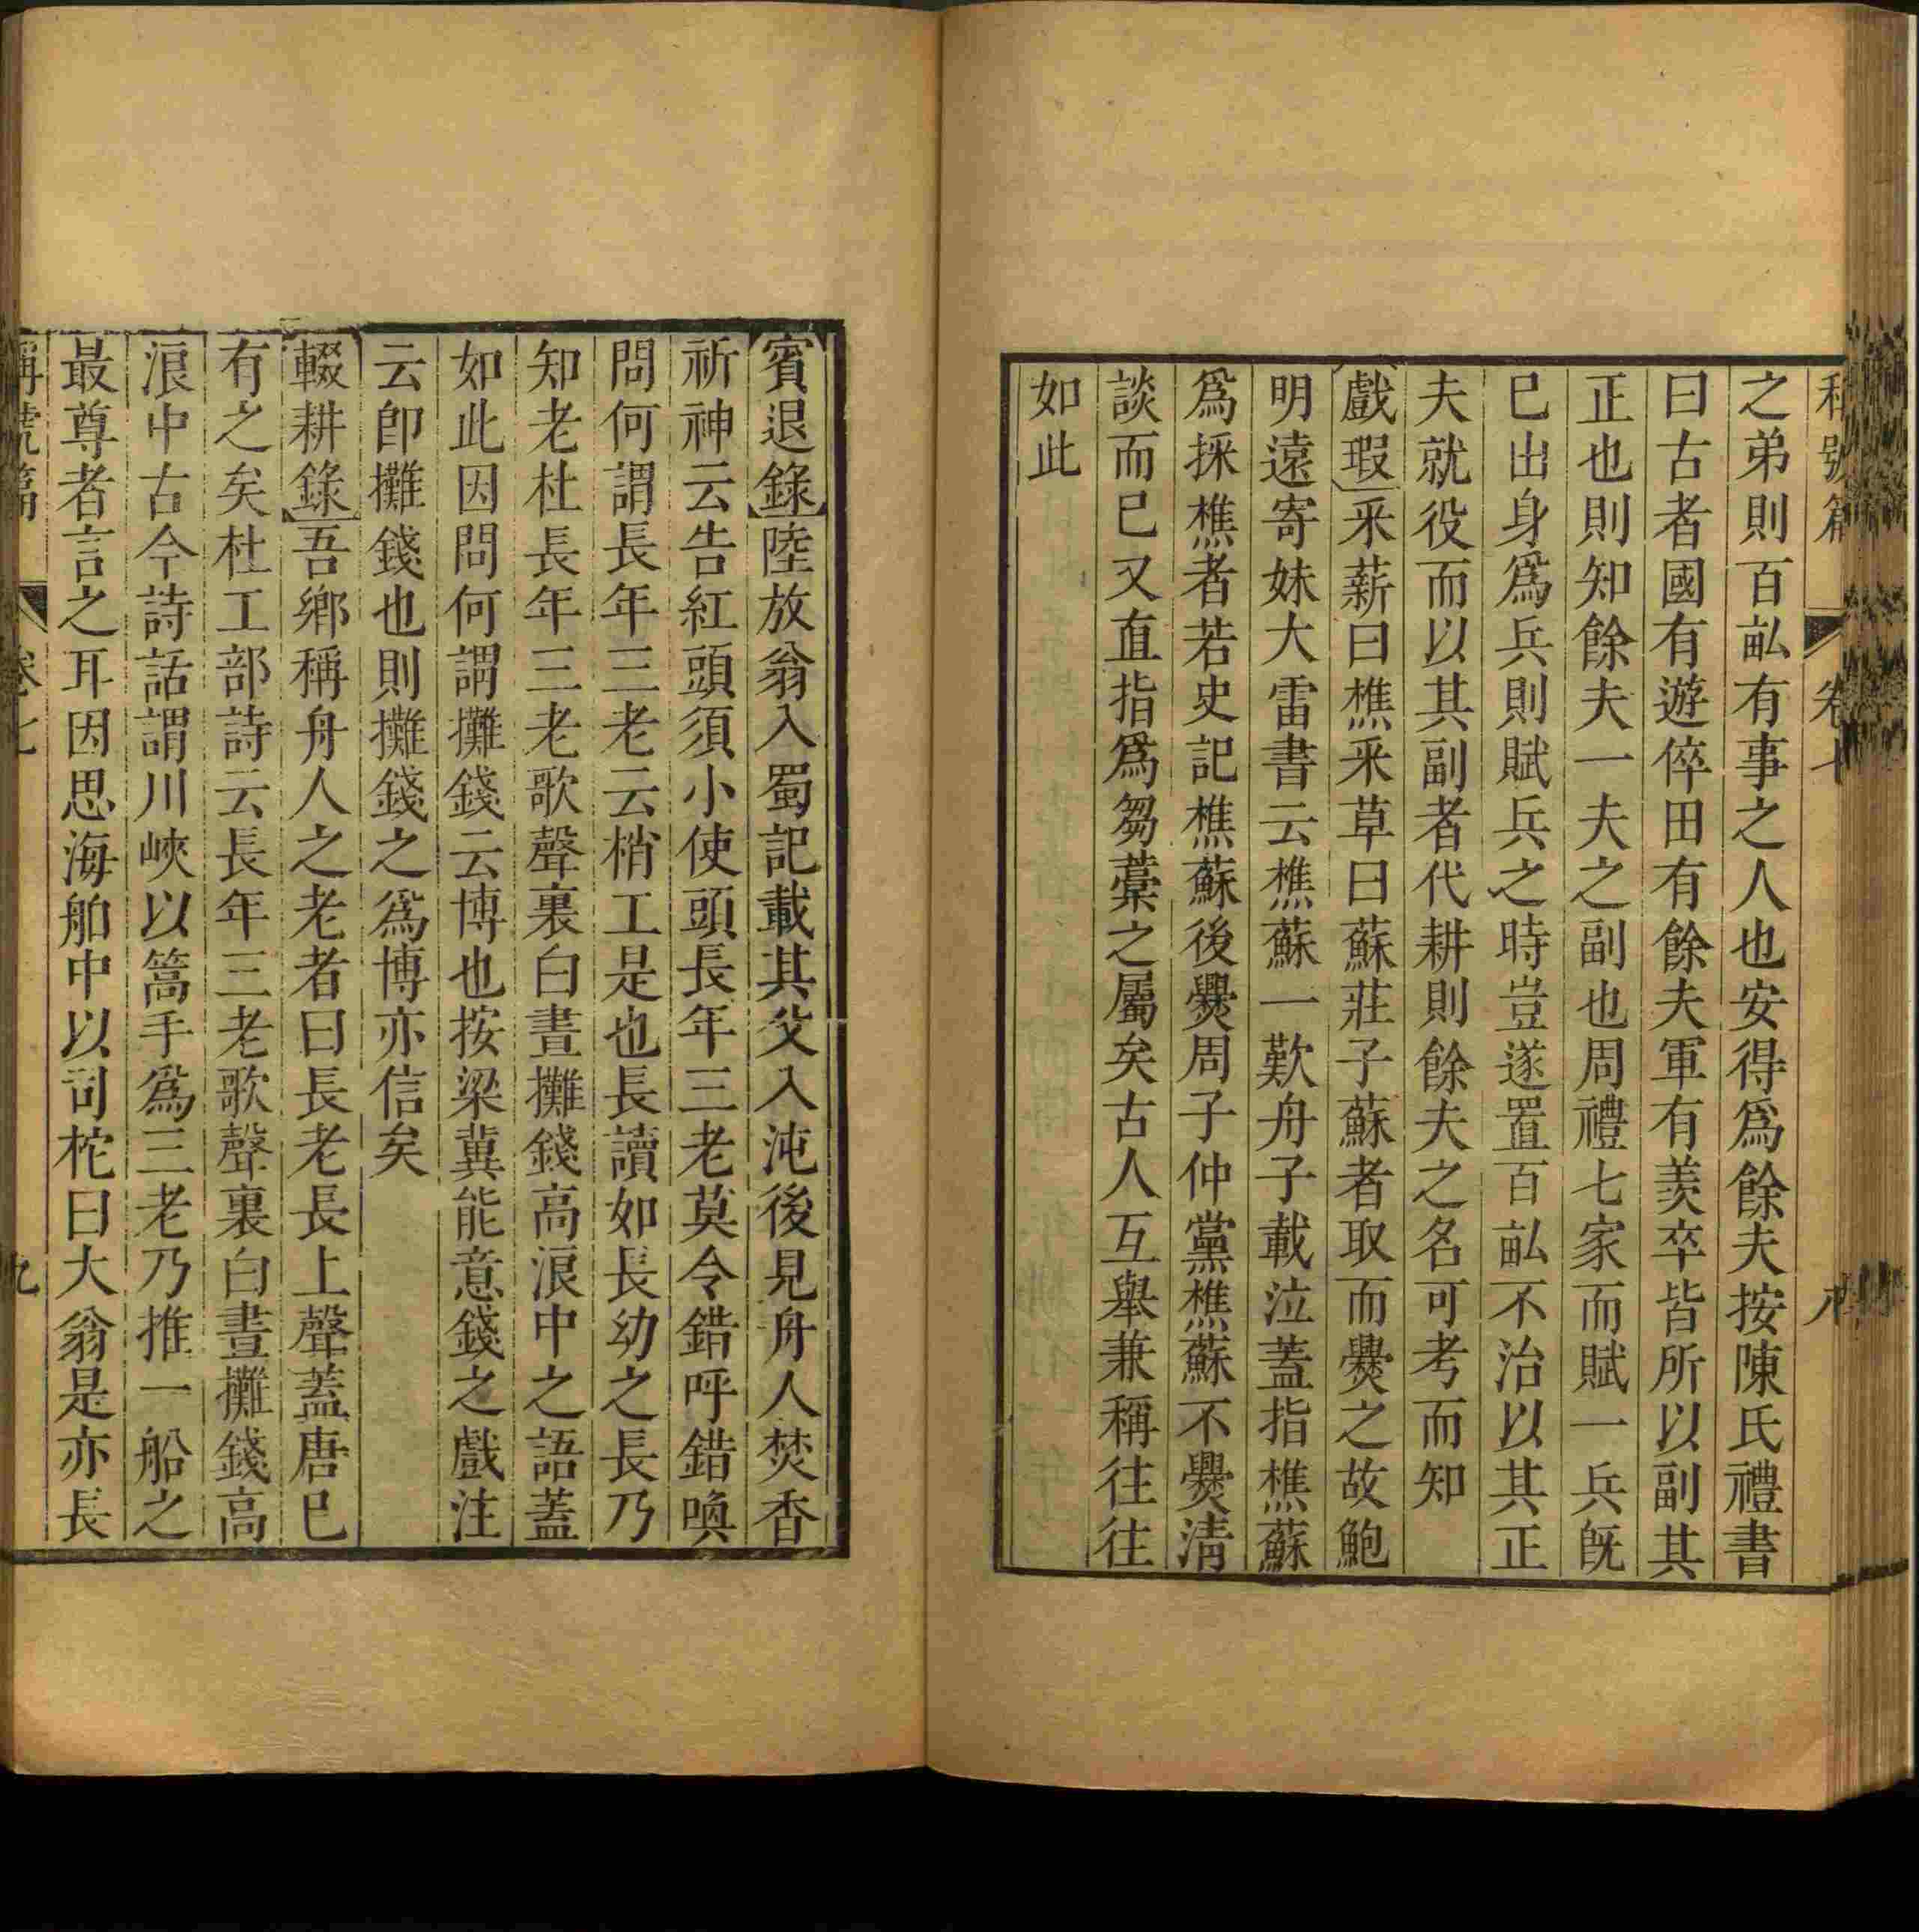 稱號篇 卷七 八
之弟則百畝有事之人也安得爲餘夫按陳氏禮書
曰古者國有遊倅田有餘夫軍有羨卒皆所以副其
正也則知餘夫一夫之副也周禮七家而賦一兵旣
已出身爲兵則賦兵之時豈遂置百畝不治以其正
夫就役而以其副者代耕則餘夫之名可考而知
戲瑕采薪曰樵采草曰蘇莊子蘇者取而爨之故鮑
明遠寄妹大雷書云樵蘇一歎舟子載泣蓋指樵蘇
爲採樵者若史記樵蘇後爨周子仲黨樵蘇不爨淸
談而已又直指爲芻藁之屬矣古人互舉兼稱往往
如此
賓退錄陸放翁入蜀記載其父入沌後見舟人焚香
祈神云告紅頭須小使頭長年三老莫令錯呼錯喚
問何謂長年三老云梢工是也長讀如長幼之長乃
知老杜長年三老歌聲裏白晝攤錢高浪中之語蓋
如此因問何謂攤錢云博也按梁冀能意錢之戲注
云卽攤錢也則攤錢之爲博亦信矣
輟耕錄吾鄉稱舟人之老者曰長老長上聲蓋唐已
有之矣杜工部詩云長年三老歌聲裏白晝攤錢高
浪中古今詩話謂川峽以篙手爲三老乃推一船之
最尊者言之耳因思海舶中以司柁曰大翁是亦長
稱號篇 卷七 九